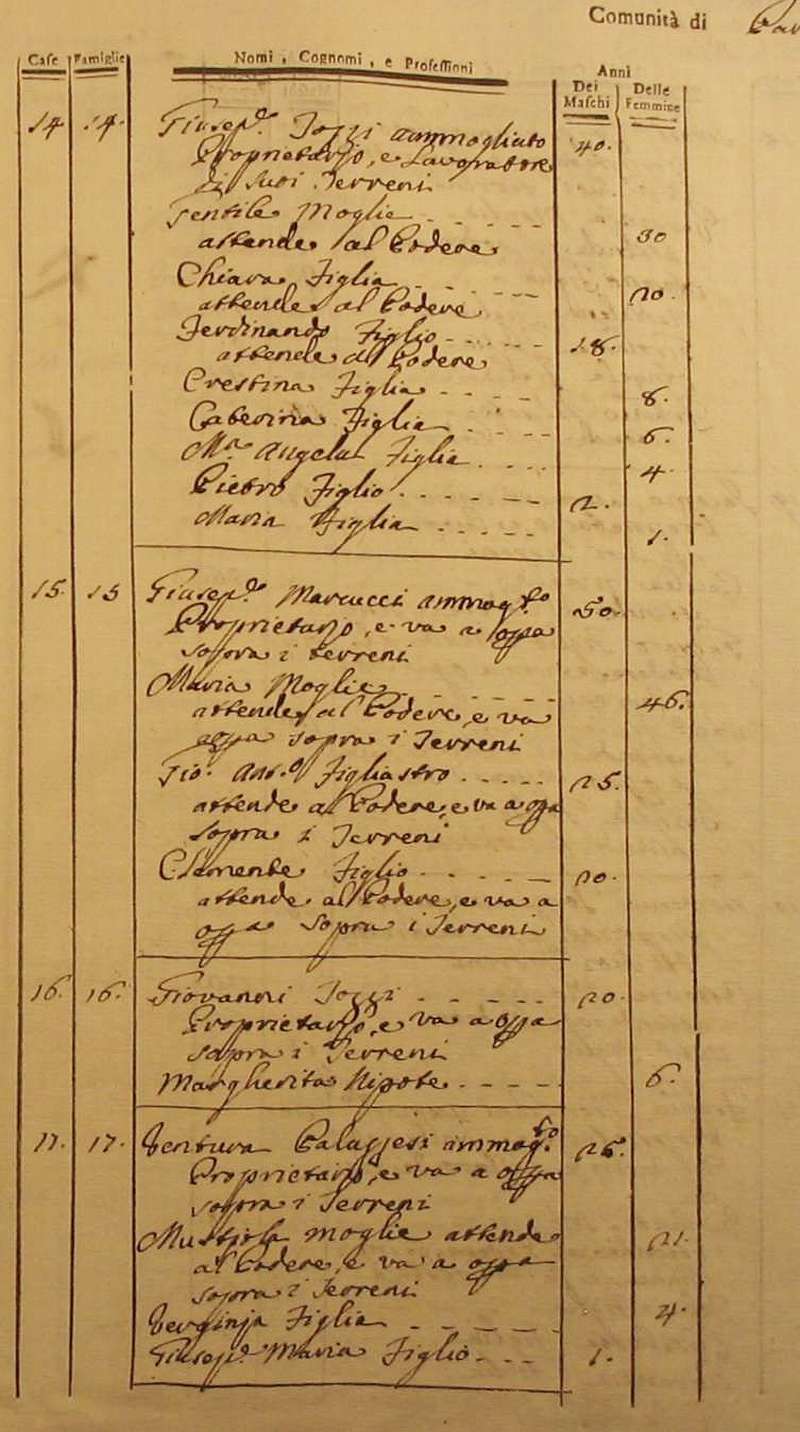 Comunità di
Case Famiglie Nomi, Cognomi, e Professioni Anni
Dei Maschi Delle Femmine
14. 14. Giusep.e Tozzi ammogliato 40.
Proprietario, e Lavoratore
di suoi Terreni
Gentile Moglie 30
attende al Podere
Chiara Figlia 20.
attende al Podere
Ferdinando Figlio 18.
attende al Podere
Crestina Figlia 8.
Caterina Figlia 6.
M.a Angela Figlia 4.
Pietro Figlio 2.
Maria Figlia 1.
15. 15 Giusep.e Marcucci ammog.to 50.
Proprietario, e va a opra
sopra i terreni
Maria Moglie 46.
attende al Podere, e va
opra sopra i Terreni
Gio. Ant.o Figliastro 25.
attende al Podere, e va a opra
sopra i Terreni
Clemente Figlio 20.
attende al Podere, e va a
opra sopra i Terreni
16. 16. Giovanni Tozzi 20.
Proprietario, e va a opra
sopra i Terreni
Margherita Nipote 6.
17. 17. Ventura ammog.to 26.
Proprietario, e va a opra
sopra i Terreni
moglie attende 21.
al Podere, e va a opra
sopra i Terreni
Verginia Figlia 4.
Giusep.e Maria Figlio 1.